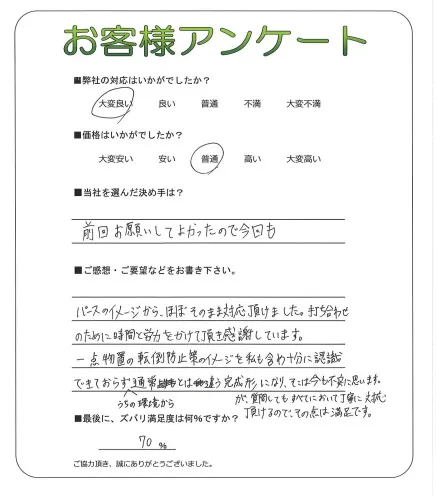 お客様アンケート
■弊社の対応はいかがでしたか？
大変良い 良い 普通 不満 大変不満
■価格はいかがでしたか？
大変安い 安い 普通 高い 大変高い
■当社を選んだ決め手は？
前回お願いしてよかったので今回も
■ご感想・ご要望などをお書き下さい。
パースのイメージから、ほぼそのまま対応頂けました。打ち合わせ
のために時間と労力をかけて頂き感謝しています。
一点物置の転倒防止策のイメージを私も含め十分に認識
できておらず通常とは違う完成形になり、そこは今も不安に思います。
うちの環境から
が、質問してもすべてにおいて丁寧に対応
頂けるので、その点は満足です。
■最後に、ズバリ満足度は何%ですか？
70 %
ご協力頂き、誠にありがとうございました。